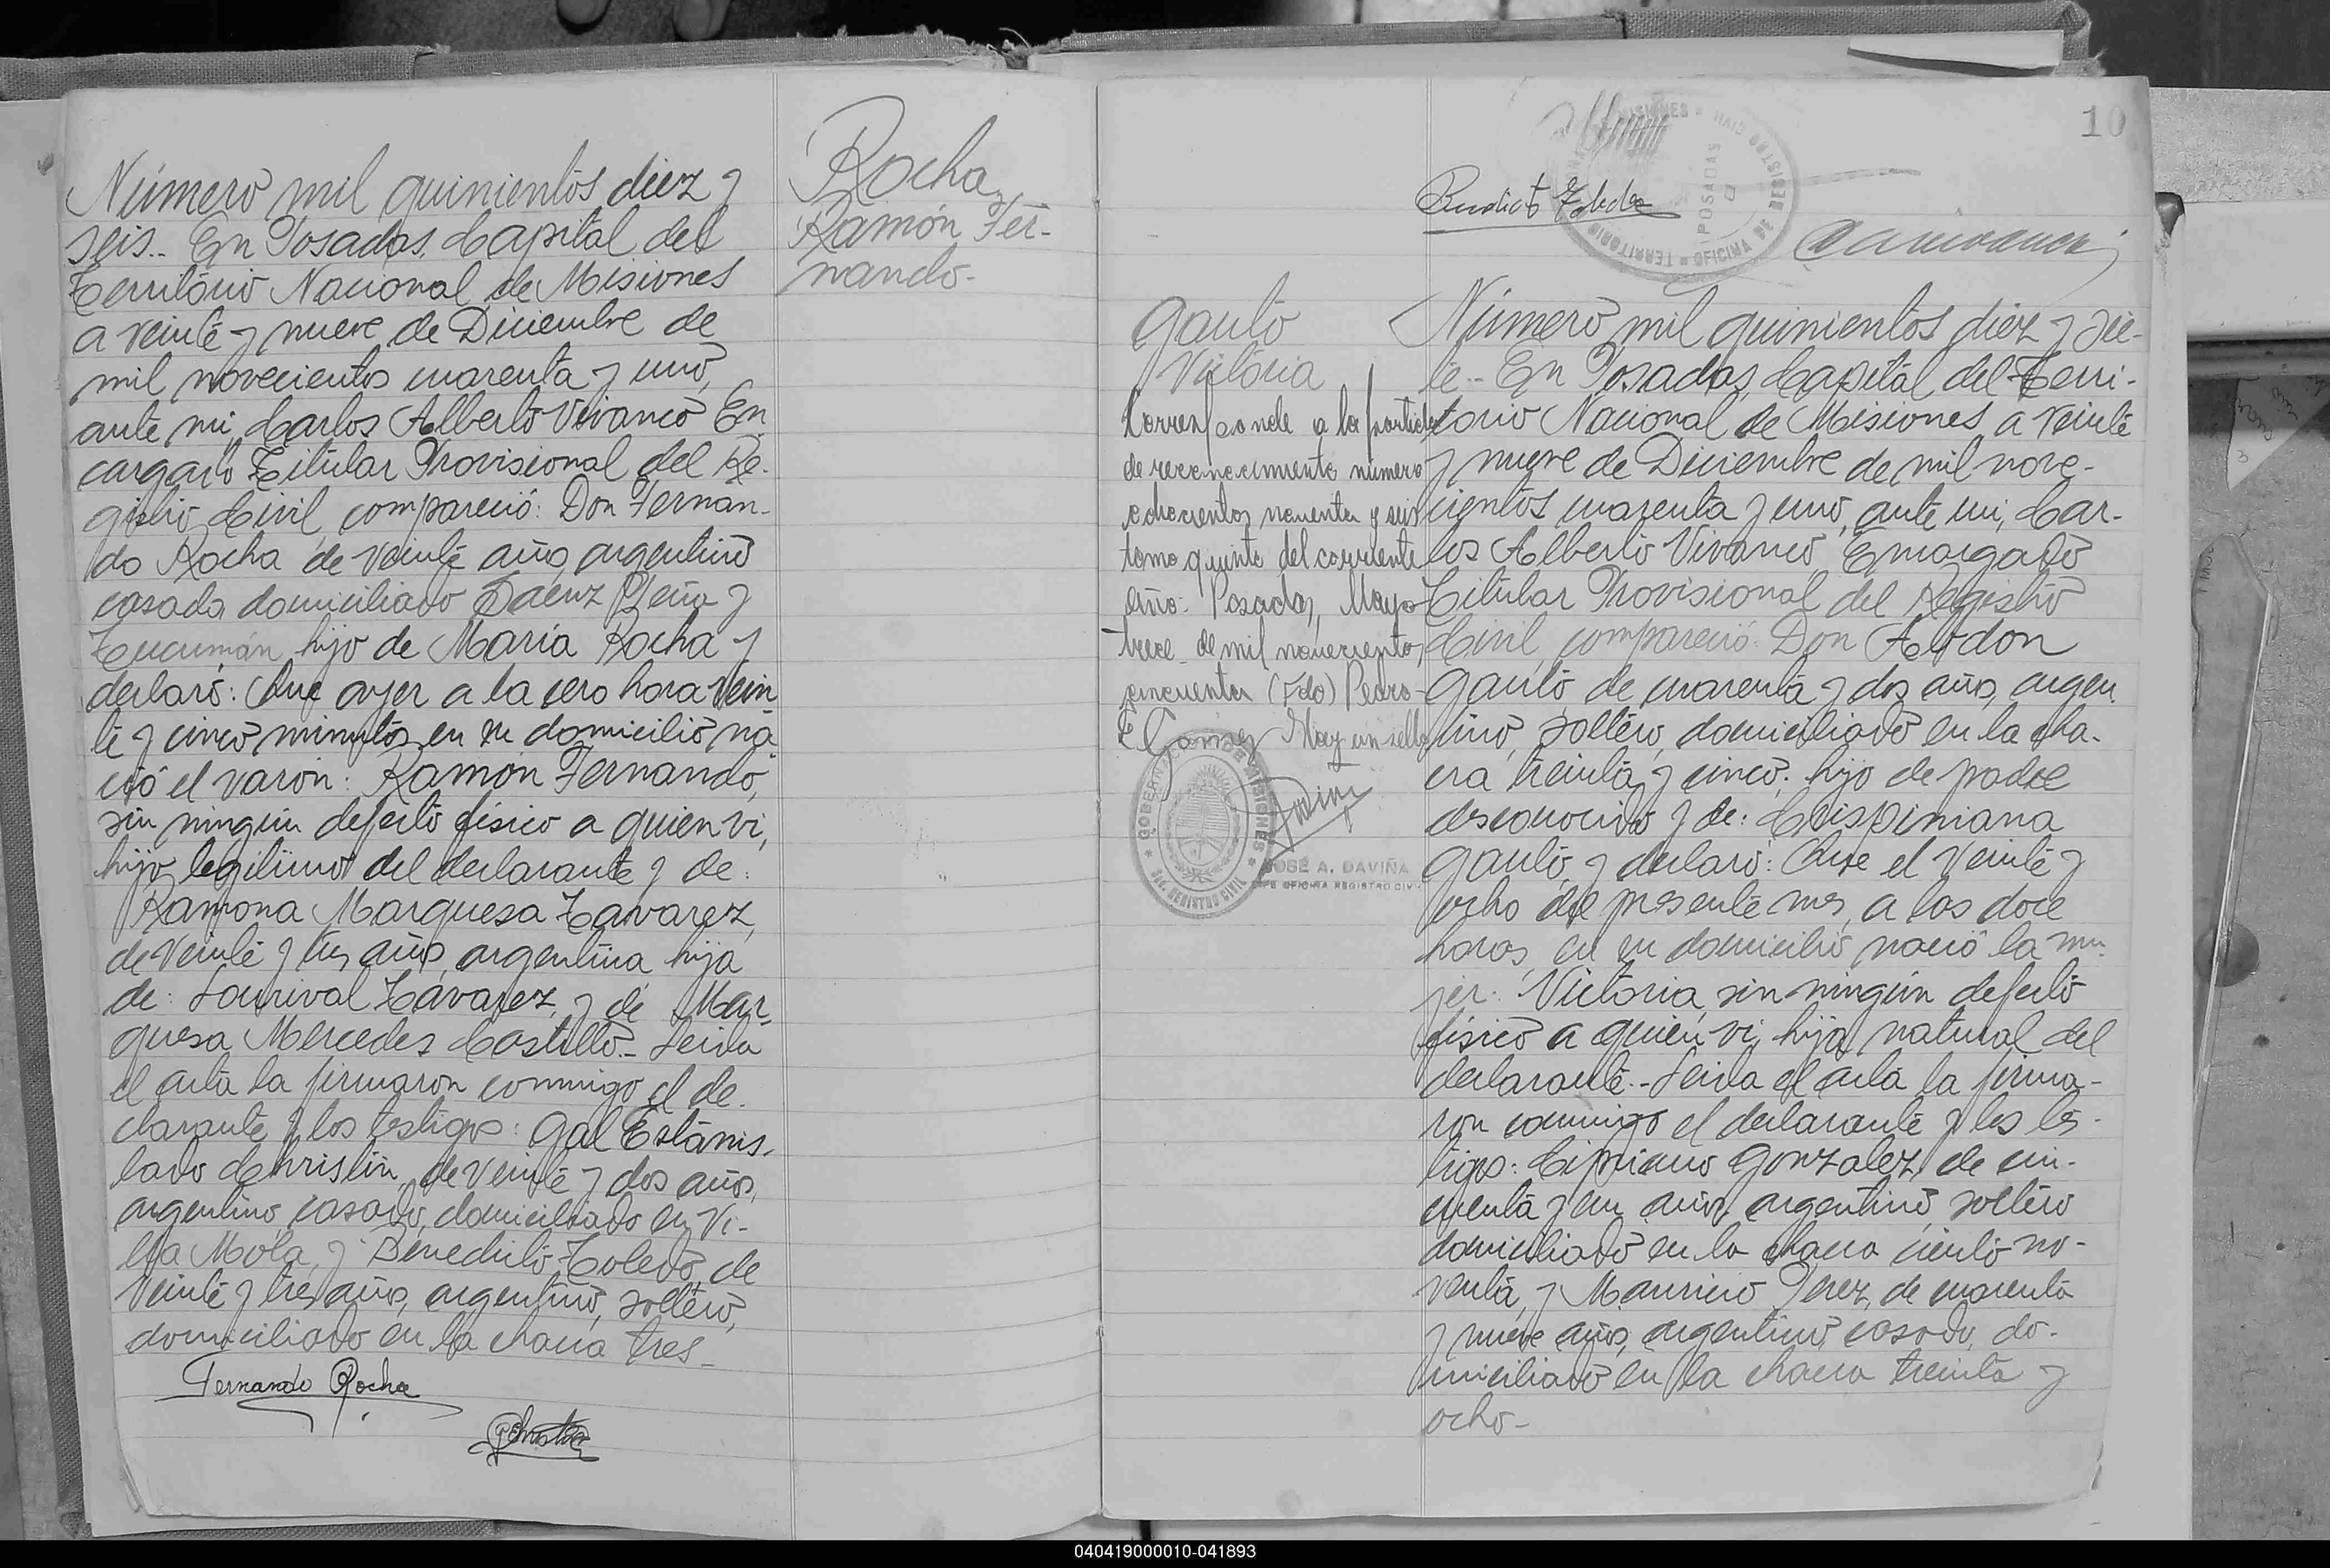 Rocha,
Ramón Fer-
nando-
Número mil quinientos diez y
seis.- En Posadas, Capital del
Territorio Nacional de Misiones
a veinte y nueve de Diciembre de
mil novecientos cuarenta y uno,
ante mi, Carlos Alberto Vivanco En
cargado Titular Provisional del Re-
gistro Civil, compareció: Don Fernan-
do Rocha de veinte años, argentino
casado, domiciliado Saenz Peña y
Tucumán, hijo de María Rocha y
declaró: Que ayer a la cero hora vein
te y cinco minutos en su domicilio na
ció el varón: Ramón Fernando,
sin ningún defecto físico a quien vi,
hijo legítimo del declarante y de:
Ramona Marquesa Tavarez,
de veinte y tres años, argentina hija
de: Lourival Tavarez, y de Mar-
quesa Mercedes Castillo.- Leída
el acta la firmaron conmigo el de-
clarante y los testigos: Gal Estanis-
lado Christin, de veinte y dos años,
argentino, casado, domiciliado en Vi-
lla Mola, y Benedicto Toledo, de
veinte y tres años, argentino, soltero,
domiciliado en la chacra tres-
Fernando Rocha
10
Benedicto Toledo
TERRITORIO MISIONES
OFICINA DE REGISTRO CIVIL
POSADAS
Gauto
Victoria
Corresponde a la partida
de reconocimiento número
ochocientos noventa y seis
tomo quinto del corriente
año. Posadas, Mayo
trece de mil novecientos
cincuenta (Fdo) Pedro
E Gomez Hay un sello
GOBERNACION DE MISIONES
REGISTRO CIVIL
JOSÉ A. DAVIÑA
JEFE OFICINA REGISTRO CIVIL
Número mil quinientos diez y sie-
te.- En Posadas, Capital del Terri-
torio Nacional de Misiones a veinte
y nueve de Diciembre de mil nove-
cientos cuarenta y uno, ante mi, Car-
los Alberto Vivanco, Encargado
Titular Provisional del Registro
Civil, compareció: Don Abdon
Gauto, de cuarenta y dos años, argen
tino, soltero, domiciliado en la cha-
cra treinta y cinco, hijo de padre
desconocido y de: Crispiniana
Gauto, y declaró: Que el veinte y
ocho del presente mes, a las doce
horas, en su domicilio nació la mu
jer: Victoria, sin ningún defecto
físico a quien vi, hija natural del
declarante.- Leída el acta la firma-
ron conmigo el declarante y los tes-
tigos: Cipriano Gonzalez, de cin-
cuenta y un años, argentino, soltero
domiciliado en la chacra ciento no-
venta, y Mauricio Perez, de cuarenta
y nueve años, argentino, casado, do-
miciliado en la chacra treinta y
ocho-
040419000010-041893